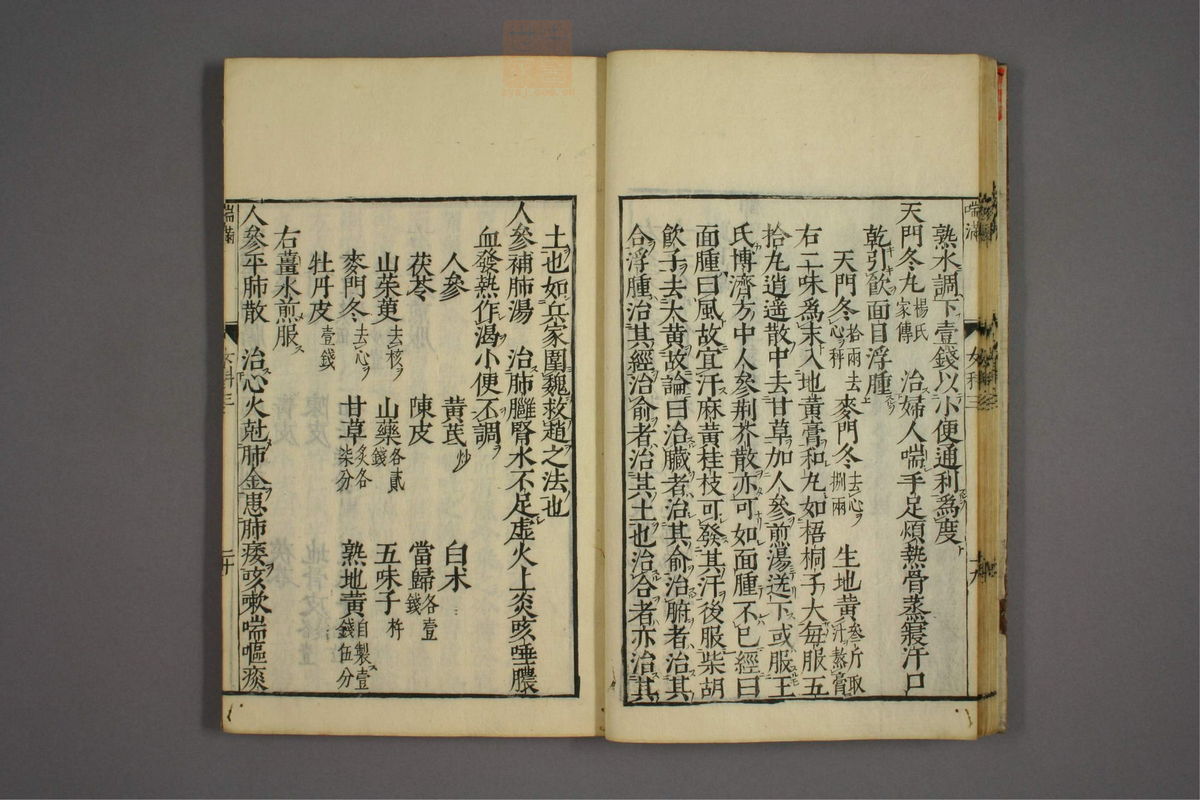 喘滿
女科三
十九
熟水調下壹錢以小便通利爲度
天門冬丸 楊氏家傳 治婦人喘手足煩熱骨蒸寢汗口
乾引飲面目浮腫
天門冬 拾兩去心秤 麥門冬 去心捌兩 生地黃 叄斤取汁熬膏
右二味爲末入地黃膏和丸如梧桐子大每服五
拾丸逍遥散中去甘草加人參煎湯送下或服王
氏博濟方中人參荆芥散亦可如面腫不已經曰
面腫曰風故宜汗麻黃桂枝可發其汗後服柴胡
飲子去大黃故論曰治臟者治其俞治腑者治其
合浮腫治其經治俞者治其土也治合者亦治其
土也如兵家圍魏救趙之法也
人參補肺湯 治肺雝腎水不足虚火上炎咳唾膿
血發熱作渴小便不調
人參 黃芪 炒 白术
茯苓 陳皮 當歸 各壹錢
山茱萸 去核 山藥 各貳錢 五味子 杵
麥門冬 去心 甘草 炙各柒分 熟地黃 自製壹錢伍分
牡丹皮 壹錢
右薑水煎服
人參平肺散 治心火尅肺金患肺痿咳嗽喘嘔痰
喘滿
女科三
二十